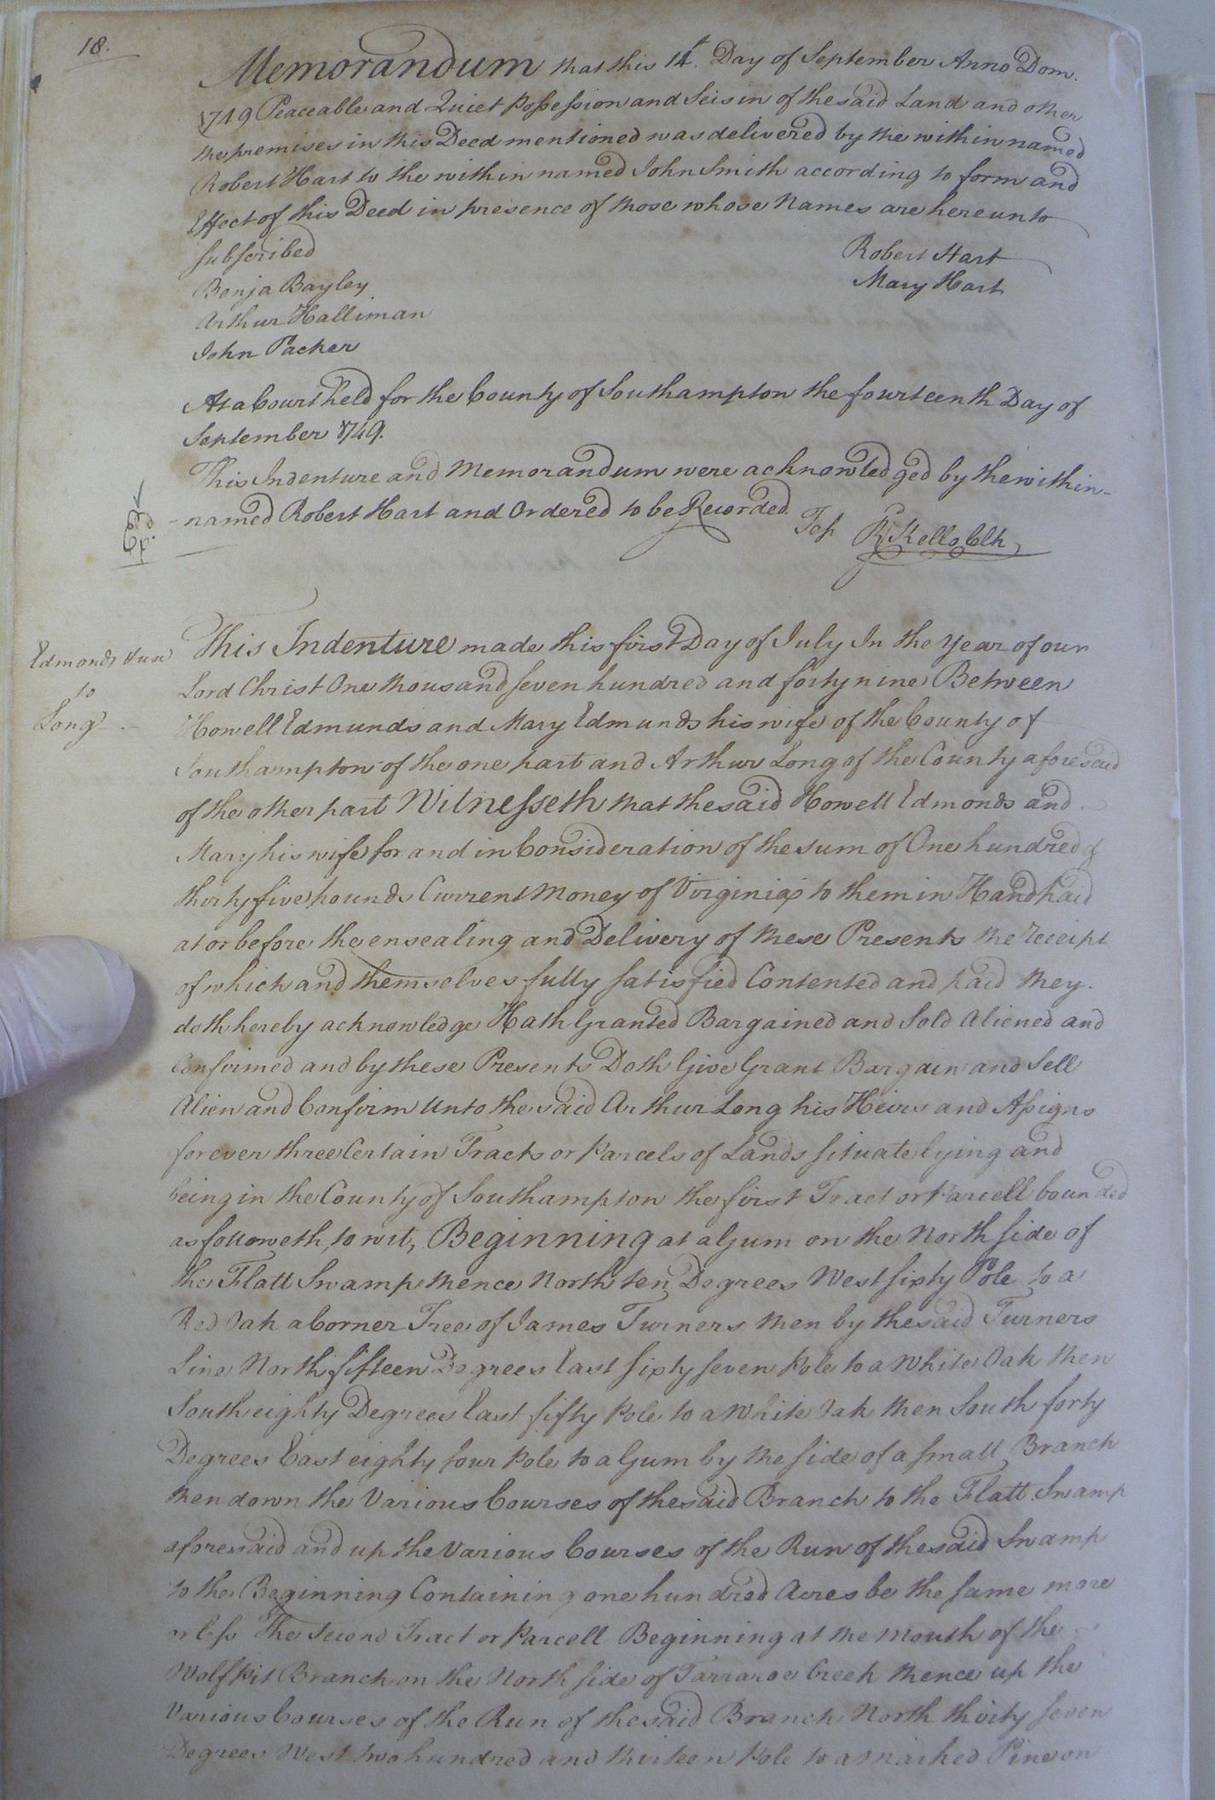 18.
Memorandum that this 14t. Day of September Anno Dom.
1749 Peaceable and Quiet Possession and Seisin of the said Land and other
the premises in this Deed mentioned was delivered by the within named
Robert Hart to the within named John Smith according to form and
Effect of this Deed in presence of those whose Names are hereunto
subscribed
Robert Hart
Mary Hart
Benja Bayley
Arthur Halliman
John Packer
At a Court held for the County of Southampton the fourteenth Day of
September 1749.
This Indenture and Memorandum were acknowledged by the within-
-named Robert Hart and Ordered to be Recorded.
Test R Kello Clk
Exd
p.
Edmonds & ux
to
Long
This Indenture made this first Day of July In the Year of our
Lord Christ One thousand seven hundred and forty nine Between
Howell Edmunds and Mary Edmunds his wife of the County of
Southampton of the one part and Arthur Long of the County aforesaid
of the other part Witnesseth that the said Howell Edmonds and
Mary his wife for and in Consideration of the sum of One hundred &
thirty five pounds Current Money of Virginia to them in Hand paid
at or before the ensealing and Delivery of these Presents the receipt
of which and themselves fully satisfied Contented and paid they
doth hereby acknowledge Hath Granted Bargained and Sold Aliened and
Confirmed and by these Presents Doth Give Grant Bargain and Sell
Alien and Confirm Unto the said Arthur Long his Heirs and Assigns
forever three Certain Tracts or Parcels of Lands situate lying and
being in the County of Southampton the first Tract or Parcell bounded
as followeth, to wit, Beginning at a Gum on the North side of
the Flatt Swamp thence North ten Degrees West sixty Pole to a
Red Oak a Corner Tree of James Turners then by the said Turners
Line North fifteen Degrees East sixty seven Pole to a White Oak then
South eighty Degrees East fifty Pole to a White Oak then South forty
Degrees East eighty four Pole to a Gum by the side of a small Branch
then down the Various Courses of the said Branch to the Flatt Swamp
aforesaid and up the Various Courses of the Run of the said Swamp
to the Beginning Containing one hundred Acres be the same more
or less The Second Tract or Parcell Beginning at the Mouth of the
Wolf Pit Branch on the North side of Tarraroe Creek thence up the
Various Courses of the Run of the said Branch North thirty seven
Degrees West two hundred and thirteen Pole to a marked Pine on